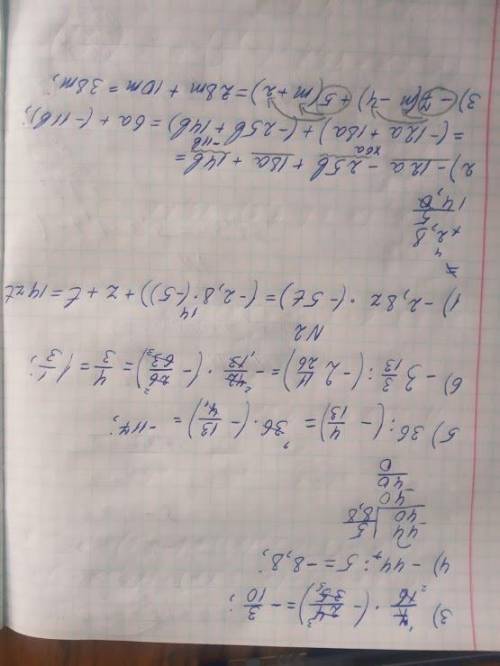 3) 7/16 · (- 24/35) = - 3/10;
4) - 44 : 5 = - 8,8;
44 | 5
40 | 8,8
40
40
0
5) 36 : (- 4/13) = 36 · (- 13/4) = - 117;
6) - 3 3/13 : (- 2 11/26) = - 42/13 · (- 26/63) = 4/3 = 1 1/3;
N2
1) - 2,8z · (- 5t) = (- 2,8 · (- 5)) + z + t = 14zt
× 2,8
5
14,0
2) - 12a - 25b + 18a + 14b =
= (- 12a + 18a) + (- 25b + 14b) = 6a + (- 11b);
3) - 7(m - 4) + 5(m + 2) = 28m + 10m = 38m;